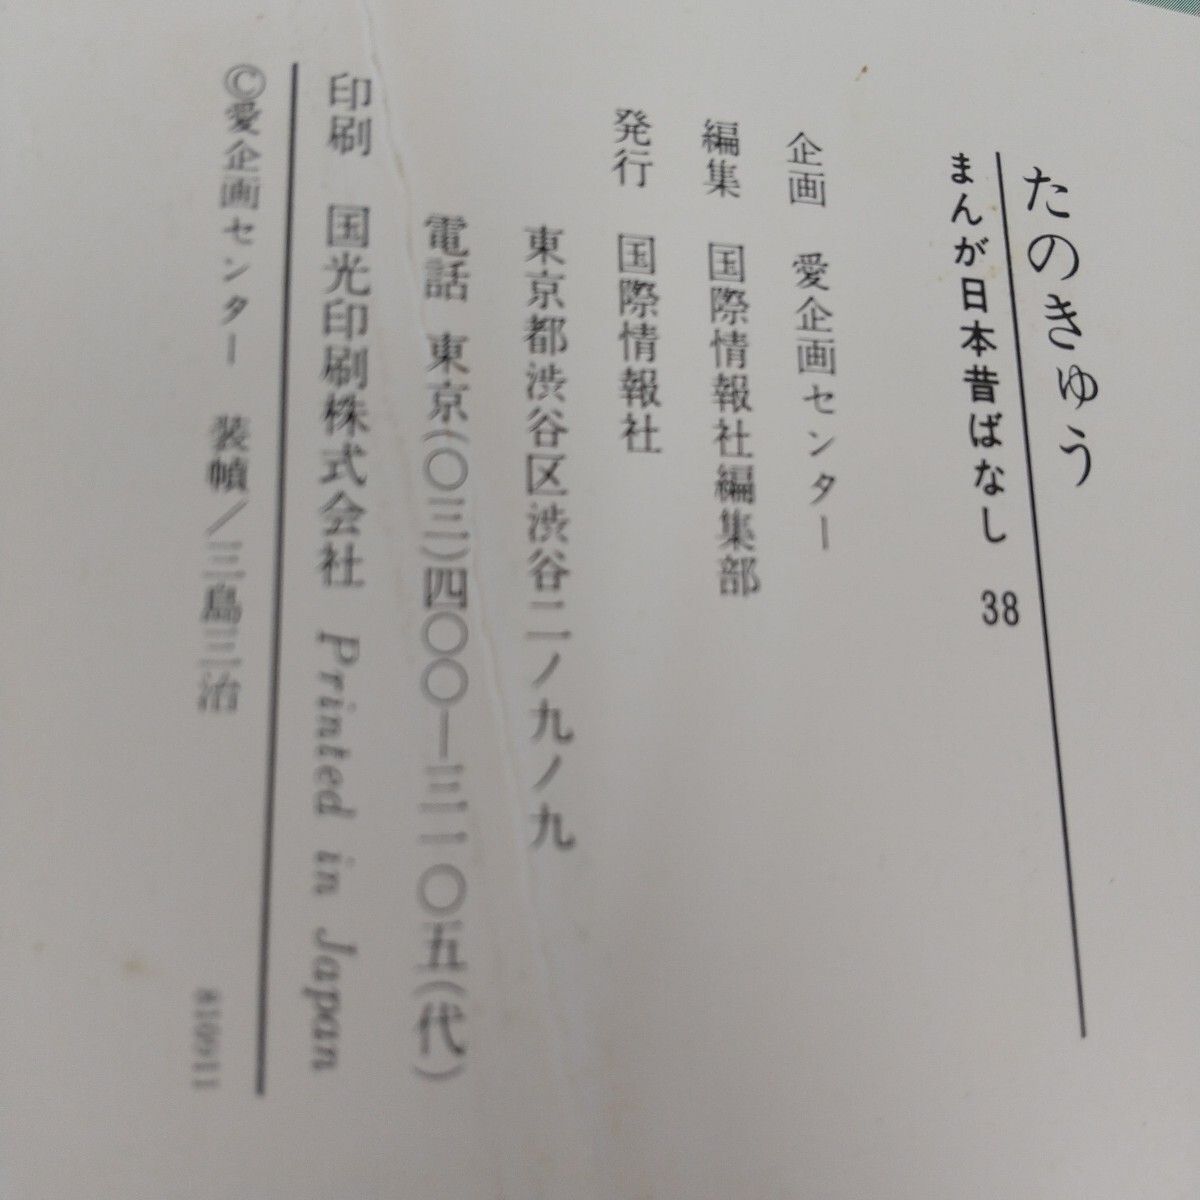 たのきゅう
まんが日本昔ばなし 38
企画 愛企画センター
編集 国際情報社編集部
発行 国際情報社
東京都渋谷区渋谷二ノ九ノ九
電話 東京(〇三)四〇〇―三一〇五(代)
印刷 国光印刷株式会社 Printed in Japan
©愛企画センター 装幀/三島三治